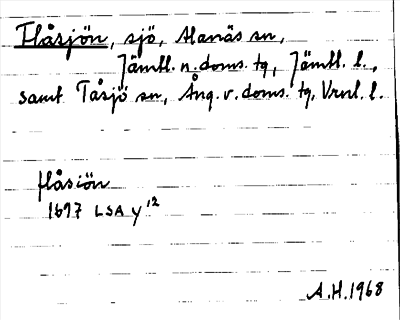 Flåsjön, sjö, Alanäs sn,
Jämtl. n. doms. tg, Jämtl. l.,
samt Tåsjö sn, Ång. v. doms. tg. Vrnl. l.
flåsiön
1697 LSA y 12
A.H. 1968